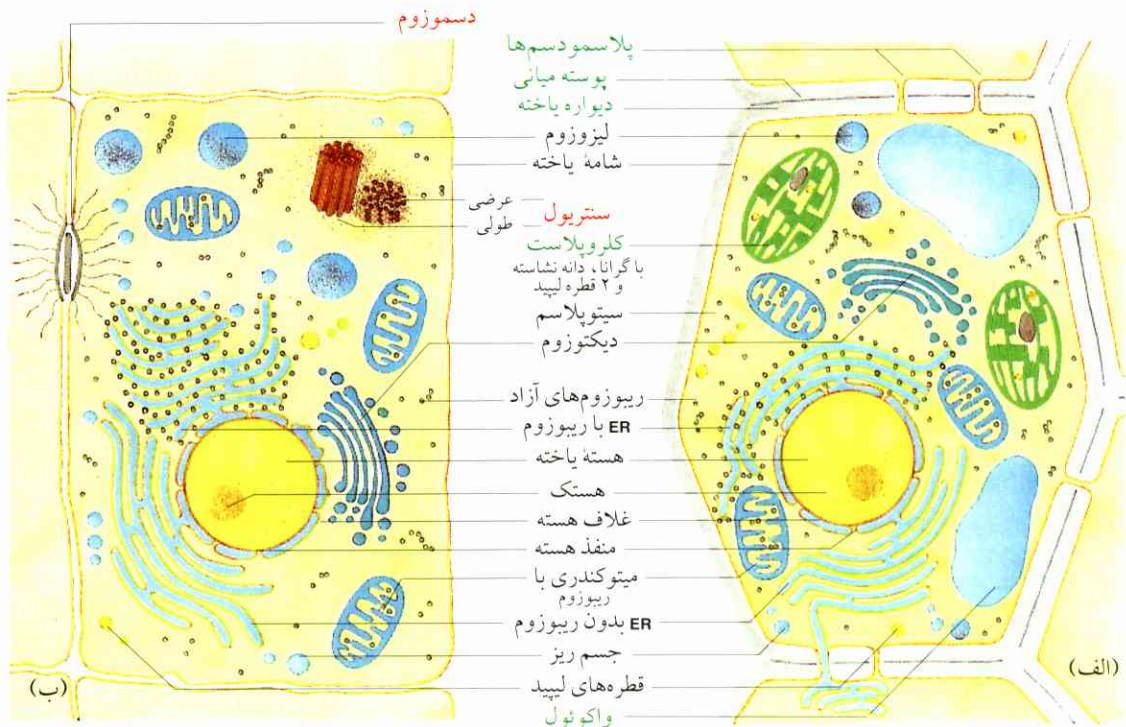 دسموزوم
پلاسمودسم‌ها
پوسته میانی
دیواره یاخته
لیزوزوم
شامهٔ یاخته
عرضی
سنتریول
طولی
کلروپلاست
با گرانا، دانه نشاسته
و ۲ قطره لیپید
سیتوپلاسم
دیکتوزوم
ریبوزوم‌های آزاد
ER با ریبوزوم
هستهٔ یاخته
هستک
غلاف هسته
منفذ هسته
میتوکندری با
ریبوزوم
ER بدون ریبوزوم
جسم ریز
قطره‌های لیپید
واکوئول
(الف)
(ب)